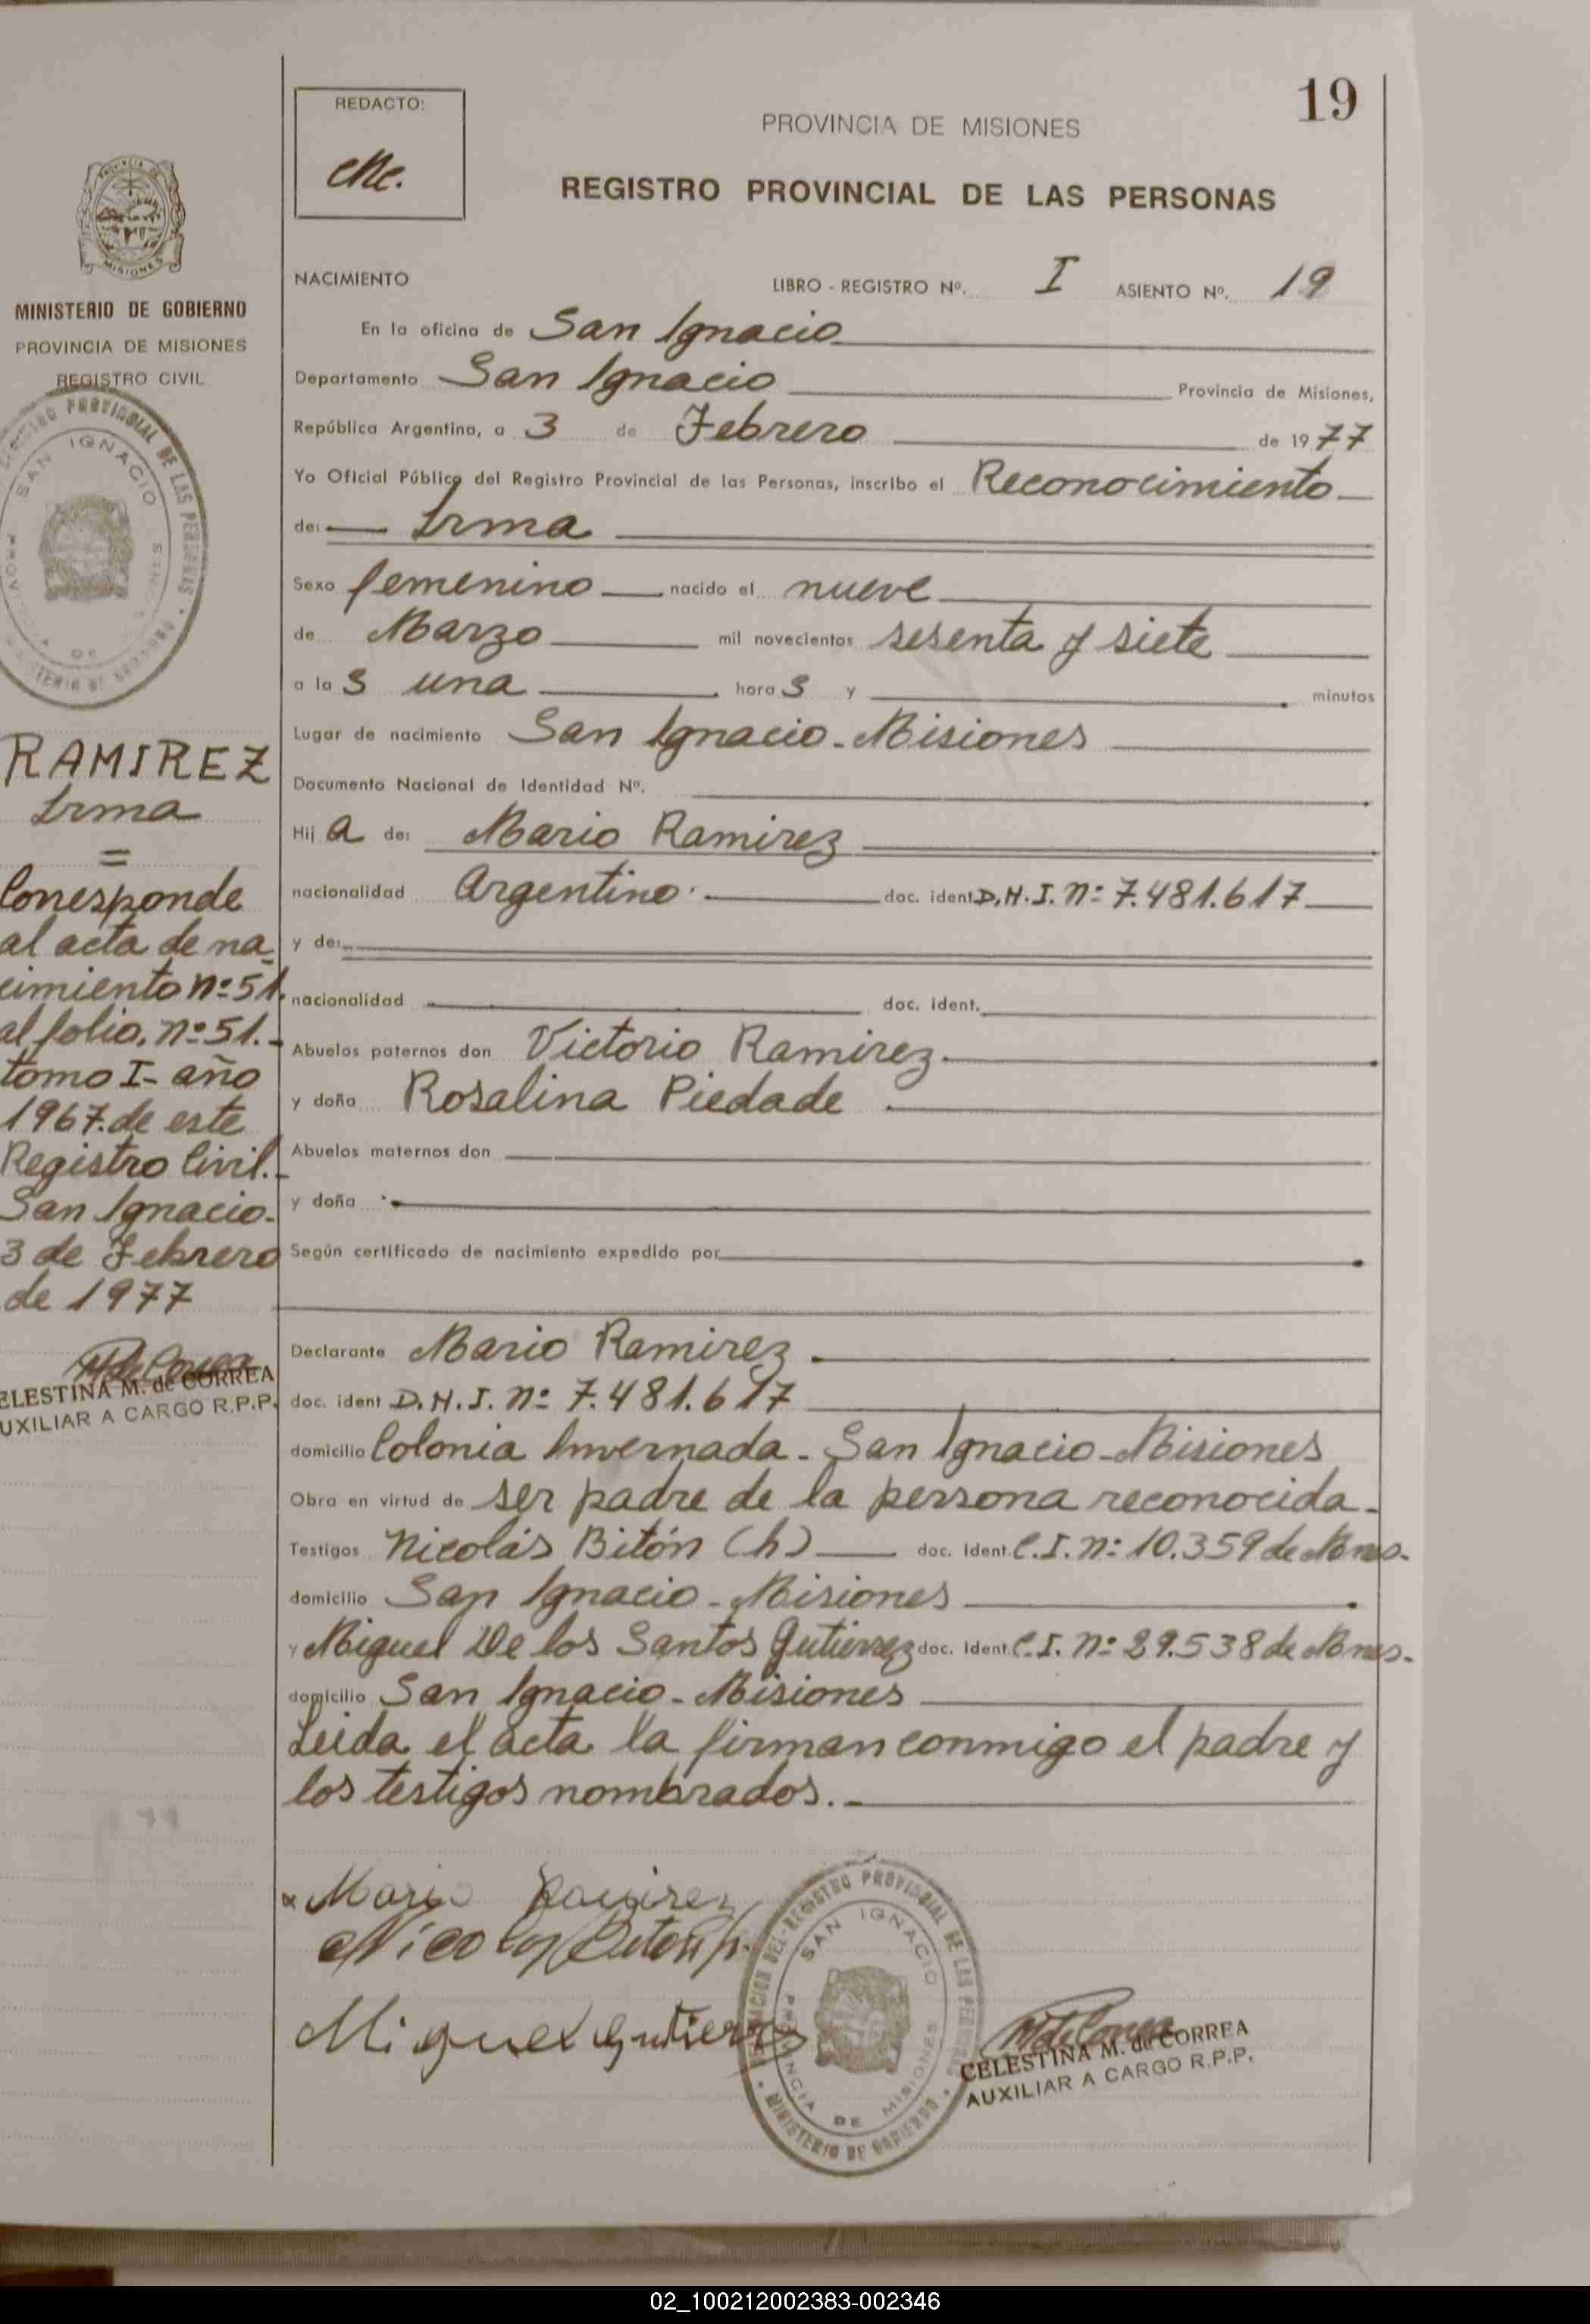 19
REDACTO:
PROVINCIA DE MISIONES
REGISTRO PROVINCIAL DE LAS PERSONAS
NACIMIENTO LIBRO - REGISTRO Nº. I ASIENTO Nº. 19
En la oficina de San Ignacio
Departamento San Ignacio Provincia de Misiones,
República Argentina, a 3 de Febrero de 1977
Yo Oficial Público del Registro Provincial de las Personas, inscribo el Reconocimiento
de: Irma
Sexo femenino nacido el nueve
de Marzo mil novecientos sesenta y siete
a las una horas y minutos
Lugar de nacimiento San Ignacio - Misiones
Documento Nacional de Identidad Nº.
Hija de: Mario Ramirez
nacionalidad Argentino doc. ident D.N.I. nº 7.481.617
y de:
nacionalidad doc. ident.
Abuelos paternos don Victorio Ramirez.
y doña Rosalina Piedade
Abuelos maternos don
y doña
Según certificado de nacimiento expedido por
Declarante Mario Ramirez
doc. ident D.N.I. nº 7.481.617
domicilio Colonia Invernada - San Ignacio - Misiones
Obra en virtud de ser padre de la persona reconocida.
Testigos Nicolás Bitón (h) doc. Ident. C.I. nº 10.359 de Mnes.
domicilio San Ignacio - Misiones
y Miguel De los Santos Gutierrez doc. Ident. C.I. nº 29.538 de Mnes.
domicilio San Ignacio - Misiones
Leida el acta la firman conmigo el padre y
los testigos nombrados.
Mario Ramirez
Nicolas Biton h.
Miguel Gutierrez
PROVINCIAL DE LAS PERSONAS
SAN IGNACIO
PROVINCIA DE MISIONES
MINISTERIO DE GOBIERNO
CELESTINA M. de CORREA
AUXILIAR A CARGO R.P.P.
MISIONES
MINISTERIO DE GOBIERNO
PROVINCIA DE MISIONES
REGISTRO CIVIL
PROVINCIAL DE LAS PERSONAS
SAN IGNACIO
RAMIREZ
Irma
=
Corresponde
al acta de na
cimiento nº 51.
al folio. nº 51.-
tomo I - año
1967. de este
Registro Civil.-
San Ignacio.
3 de Febrero
de 1977
ELESTINA M. de CORREA
UXILIAR A CARGO R.P.P.
02_100212002383-002346